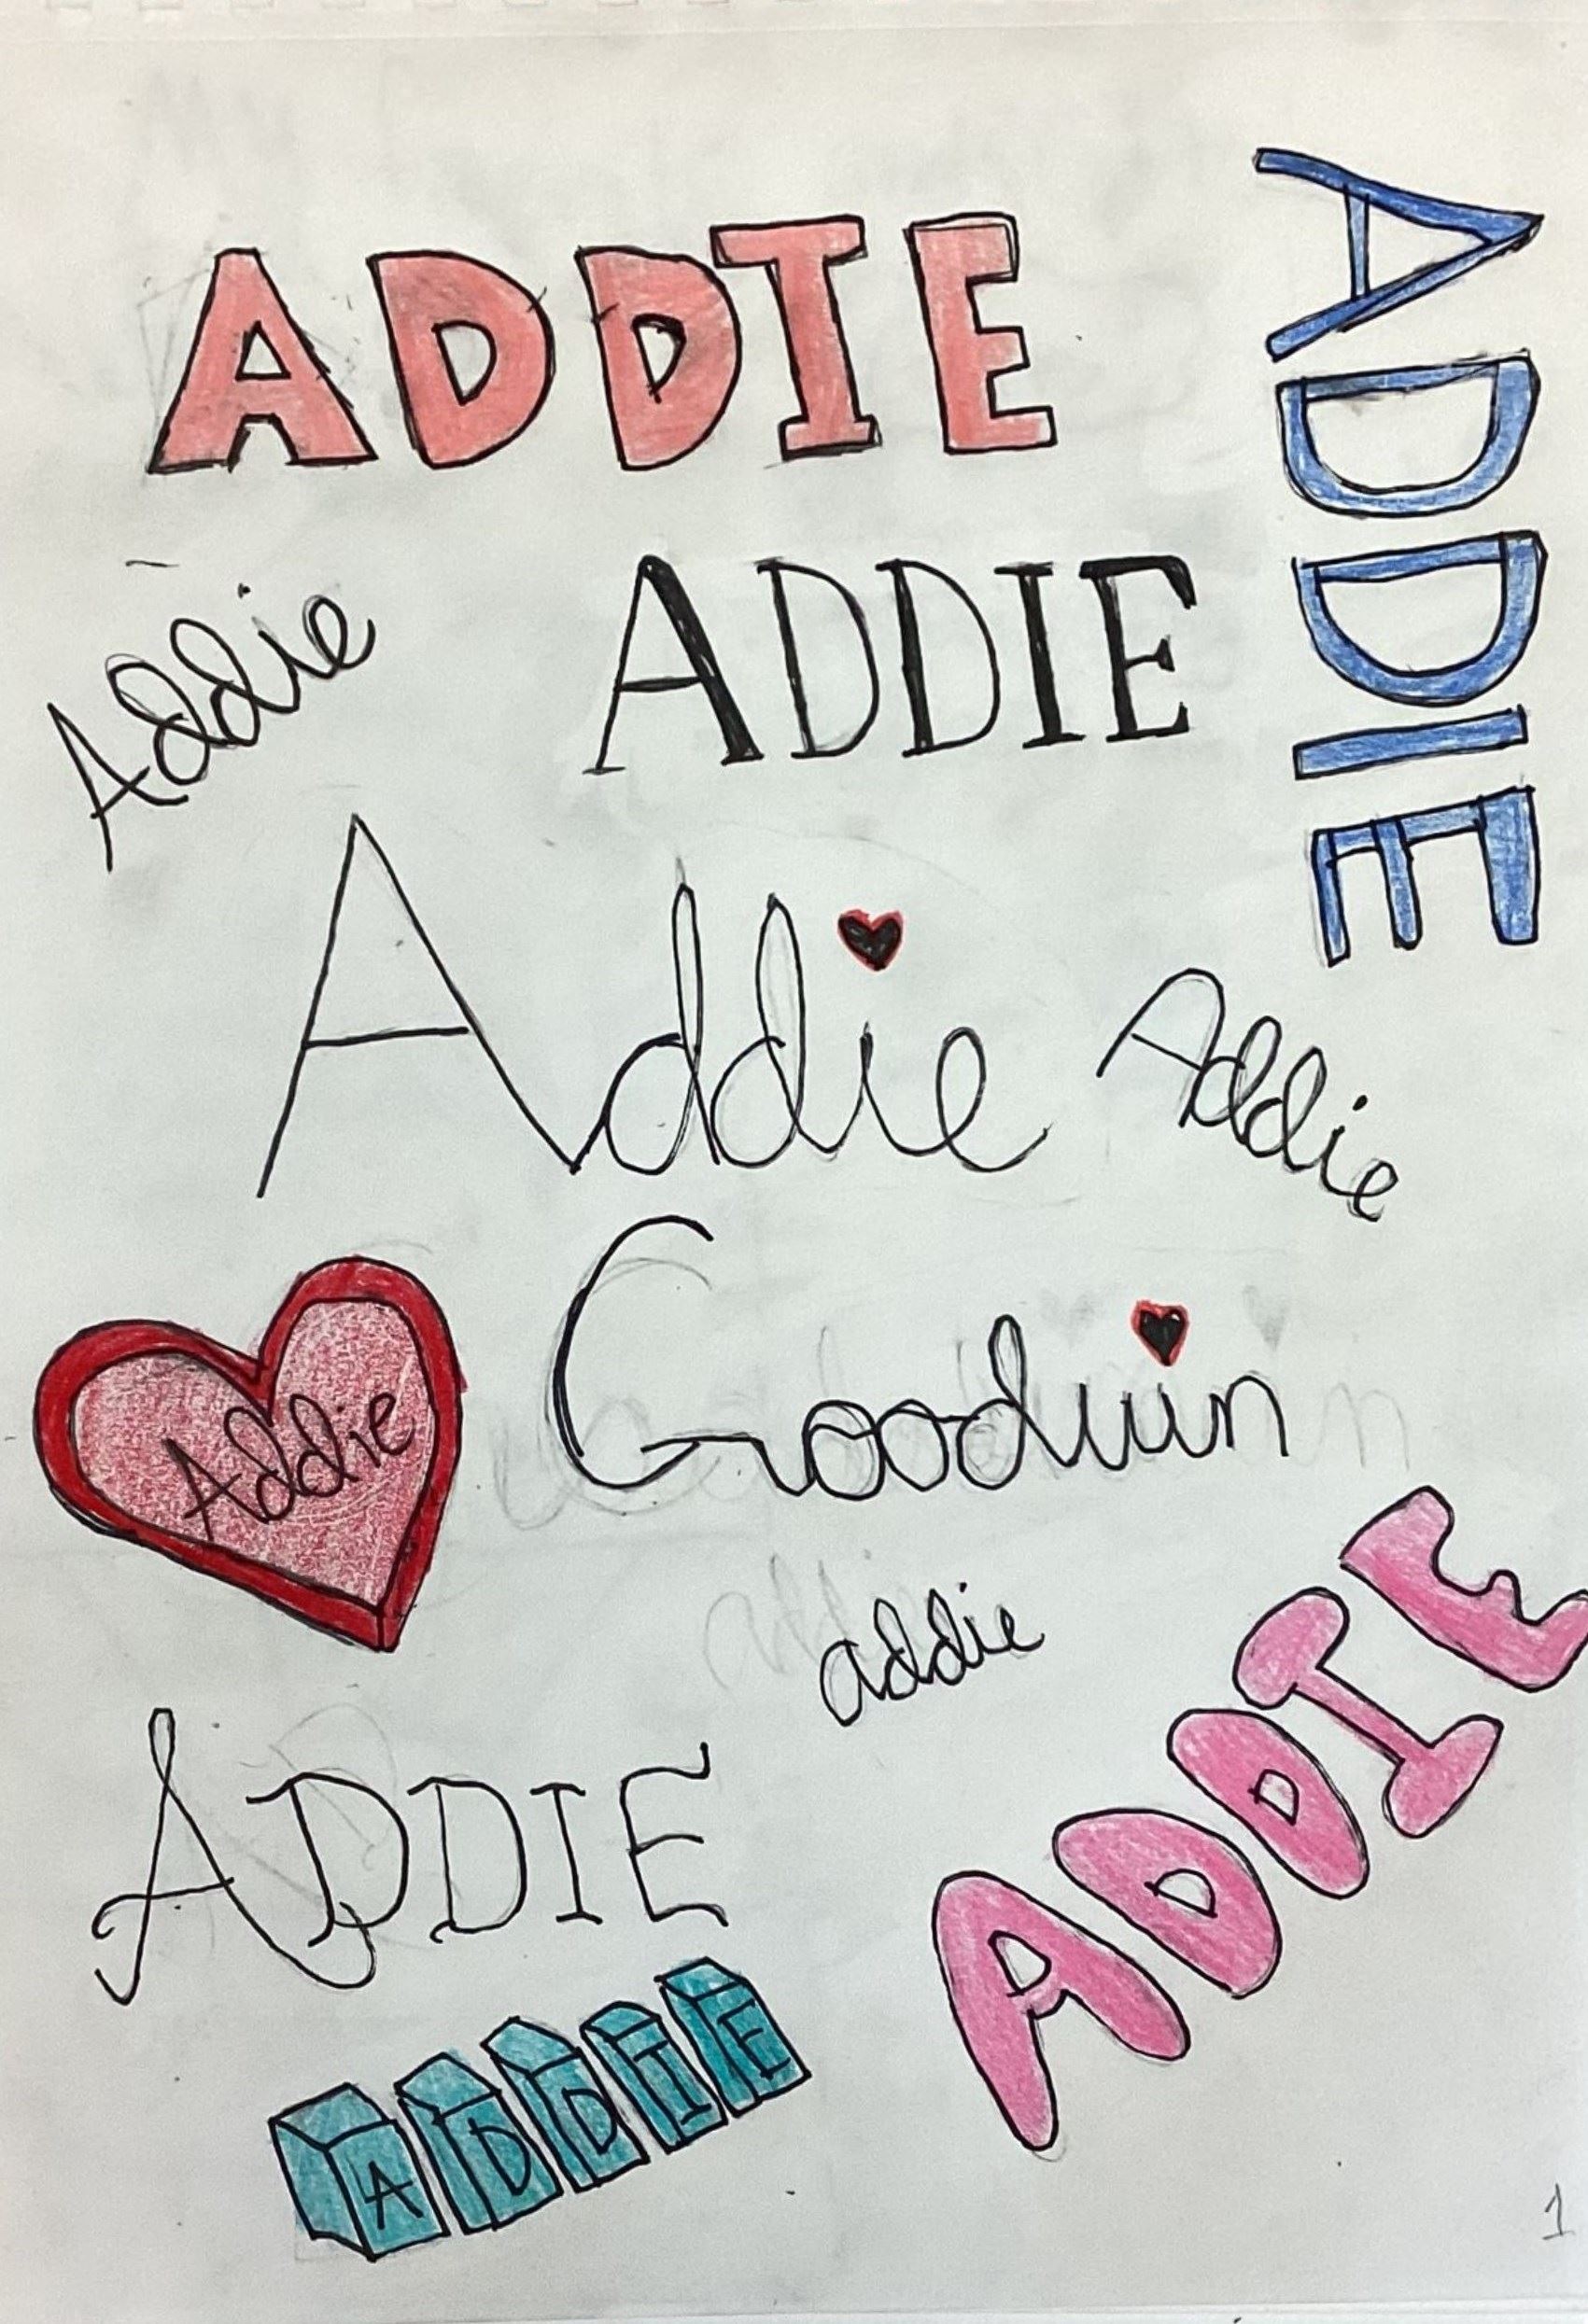 ADDIE
ADDIE
Addie
ADDIE
Addie
Addie
Goodwin
Addie
addie
ADDIE
ADDIE
ADDIE
1